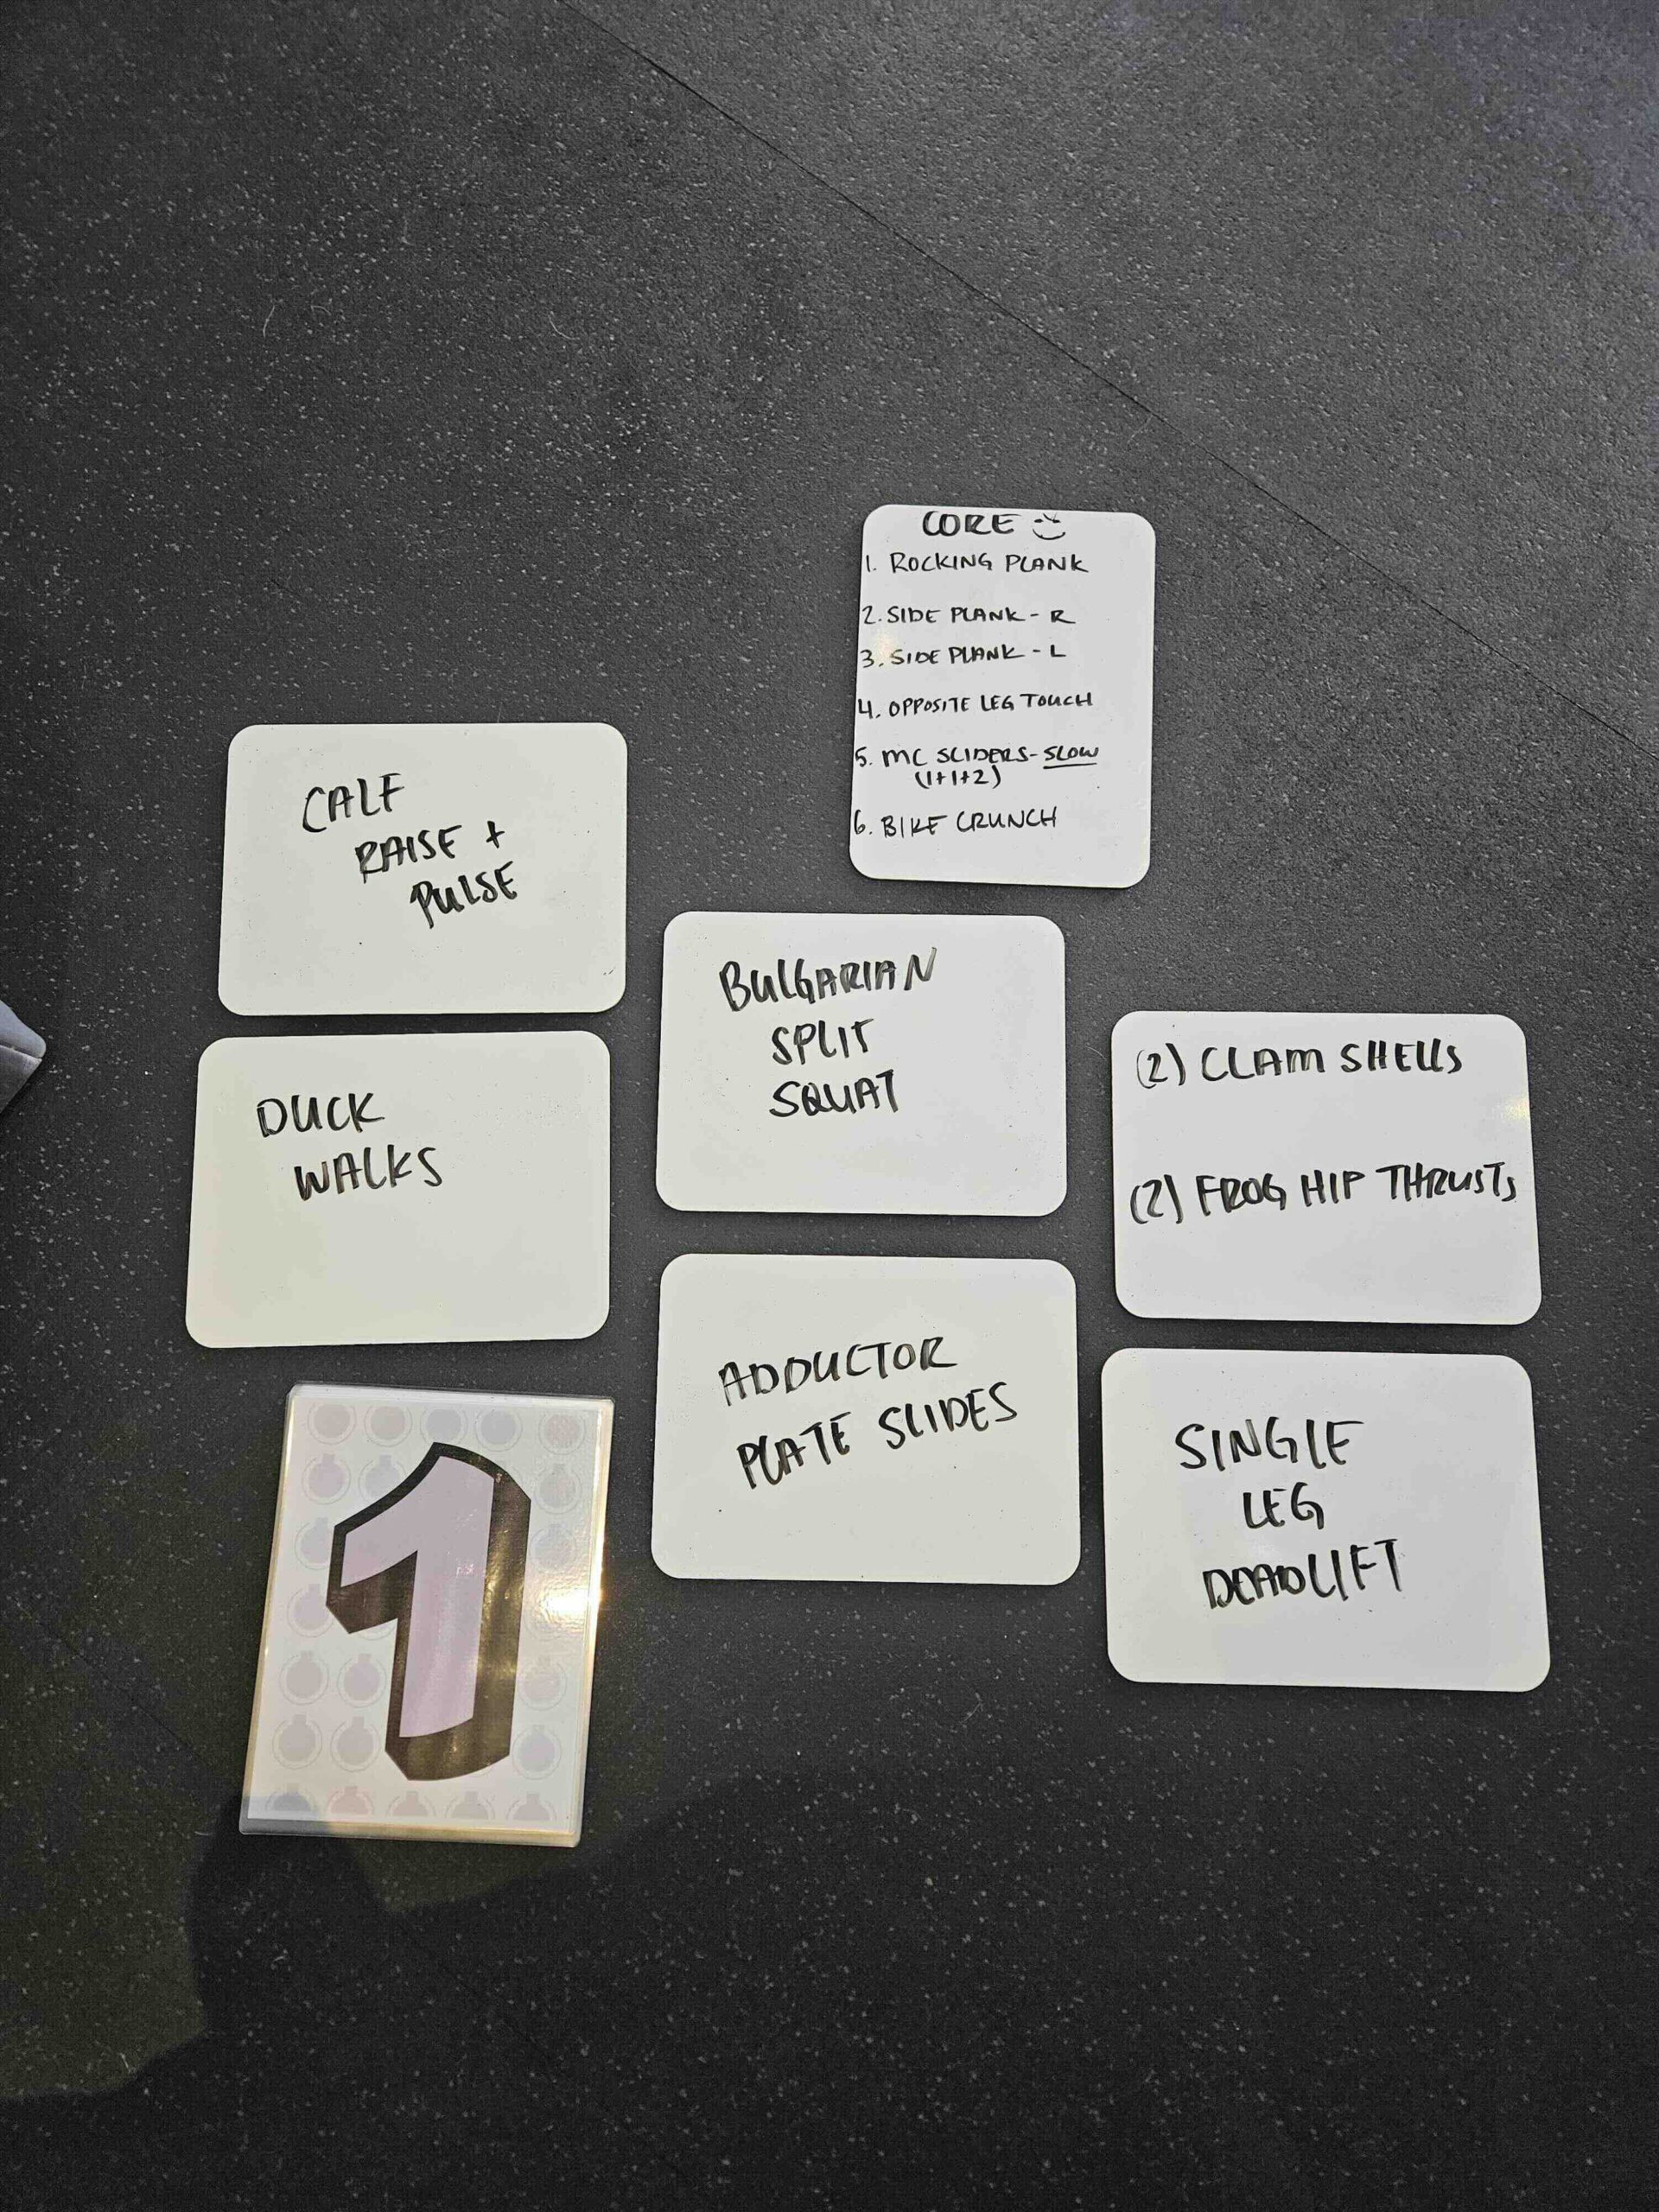 CORE
1. ROCKING PLANK
2. SIDE PLANK - R
3. SIDE PLANK - L
4. OPPOSITE LEG TOUCH
5. MC SLIDERS - SLOW
(1+1+2)
6. BIKE CRUNCH
CALF
RAISE +
PULSE
DUCK
WALKS
1
BULGARIAN
SPLIT
SQUAT
ADDUCTOR
PLATE SLIDES
(2) CLAM SHELLS
(2) FROG HIP THRUSTS
SINGLE
LEG
DEADLIFT